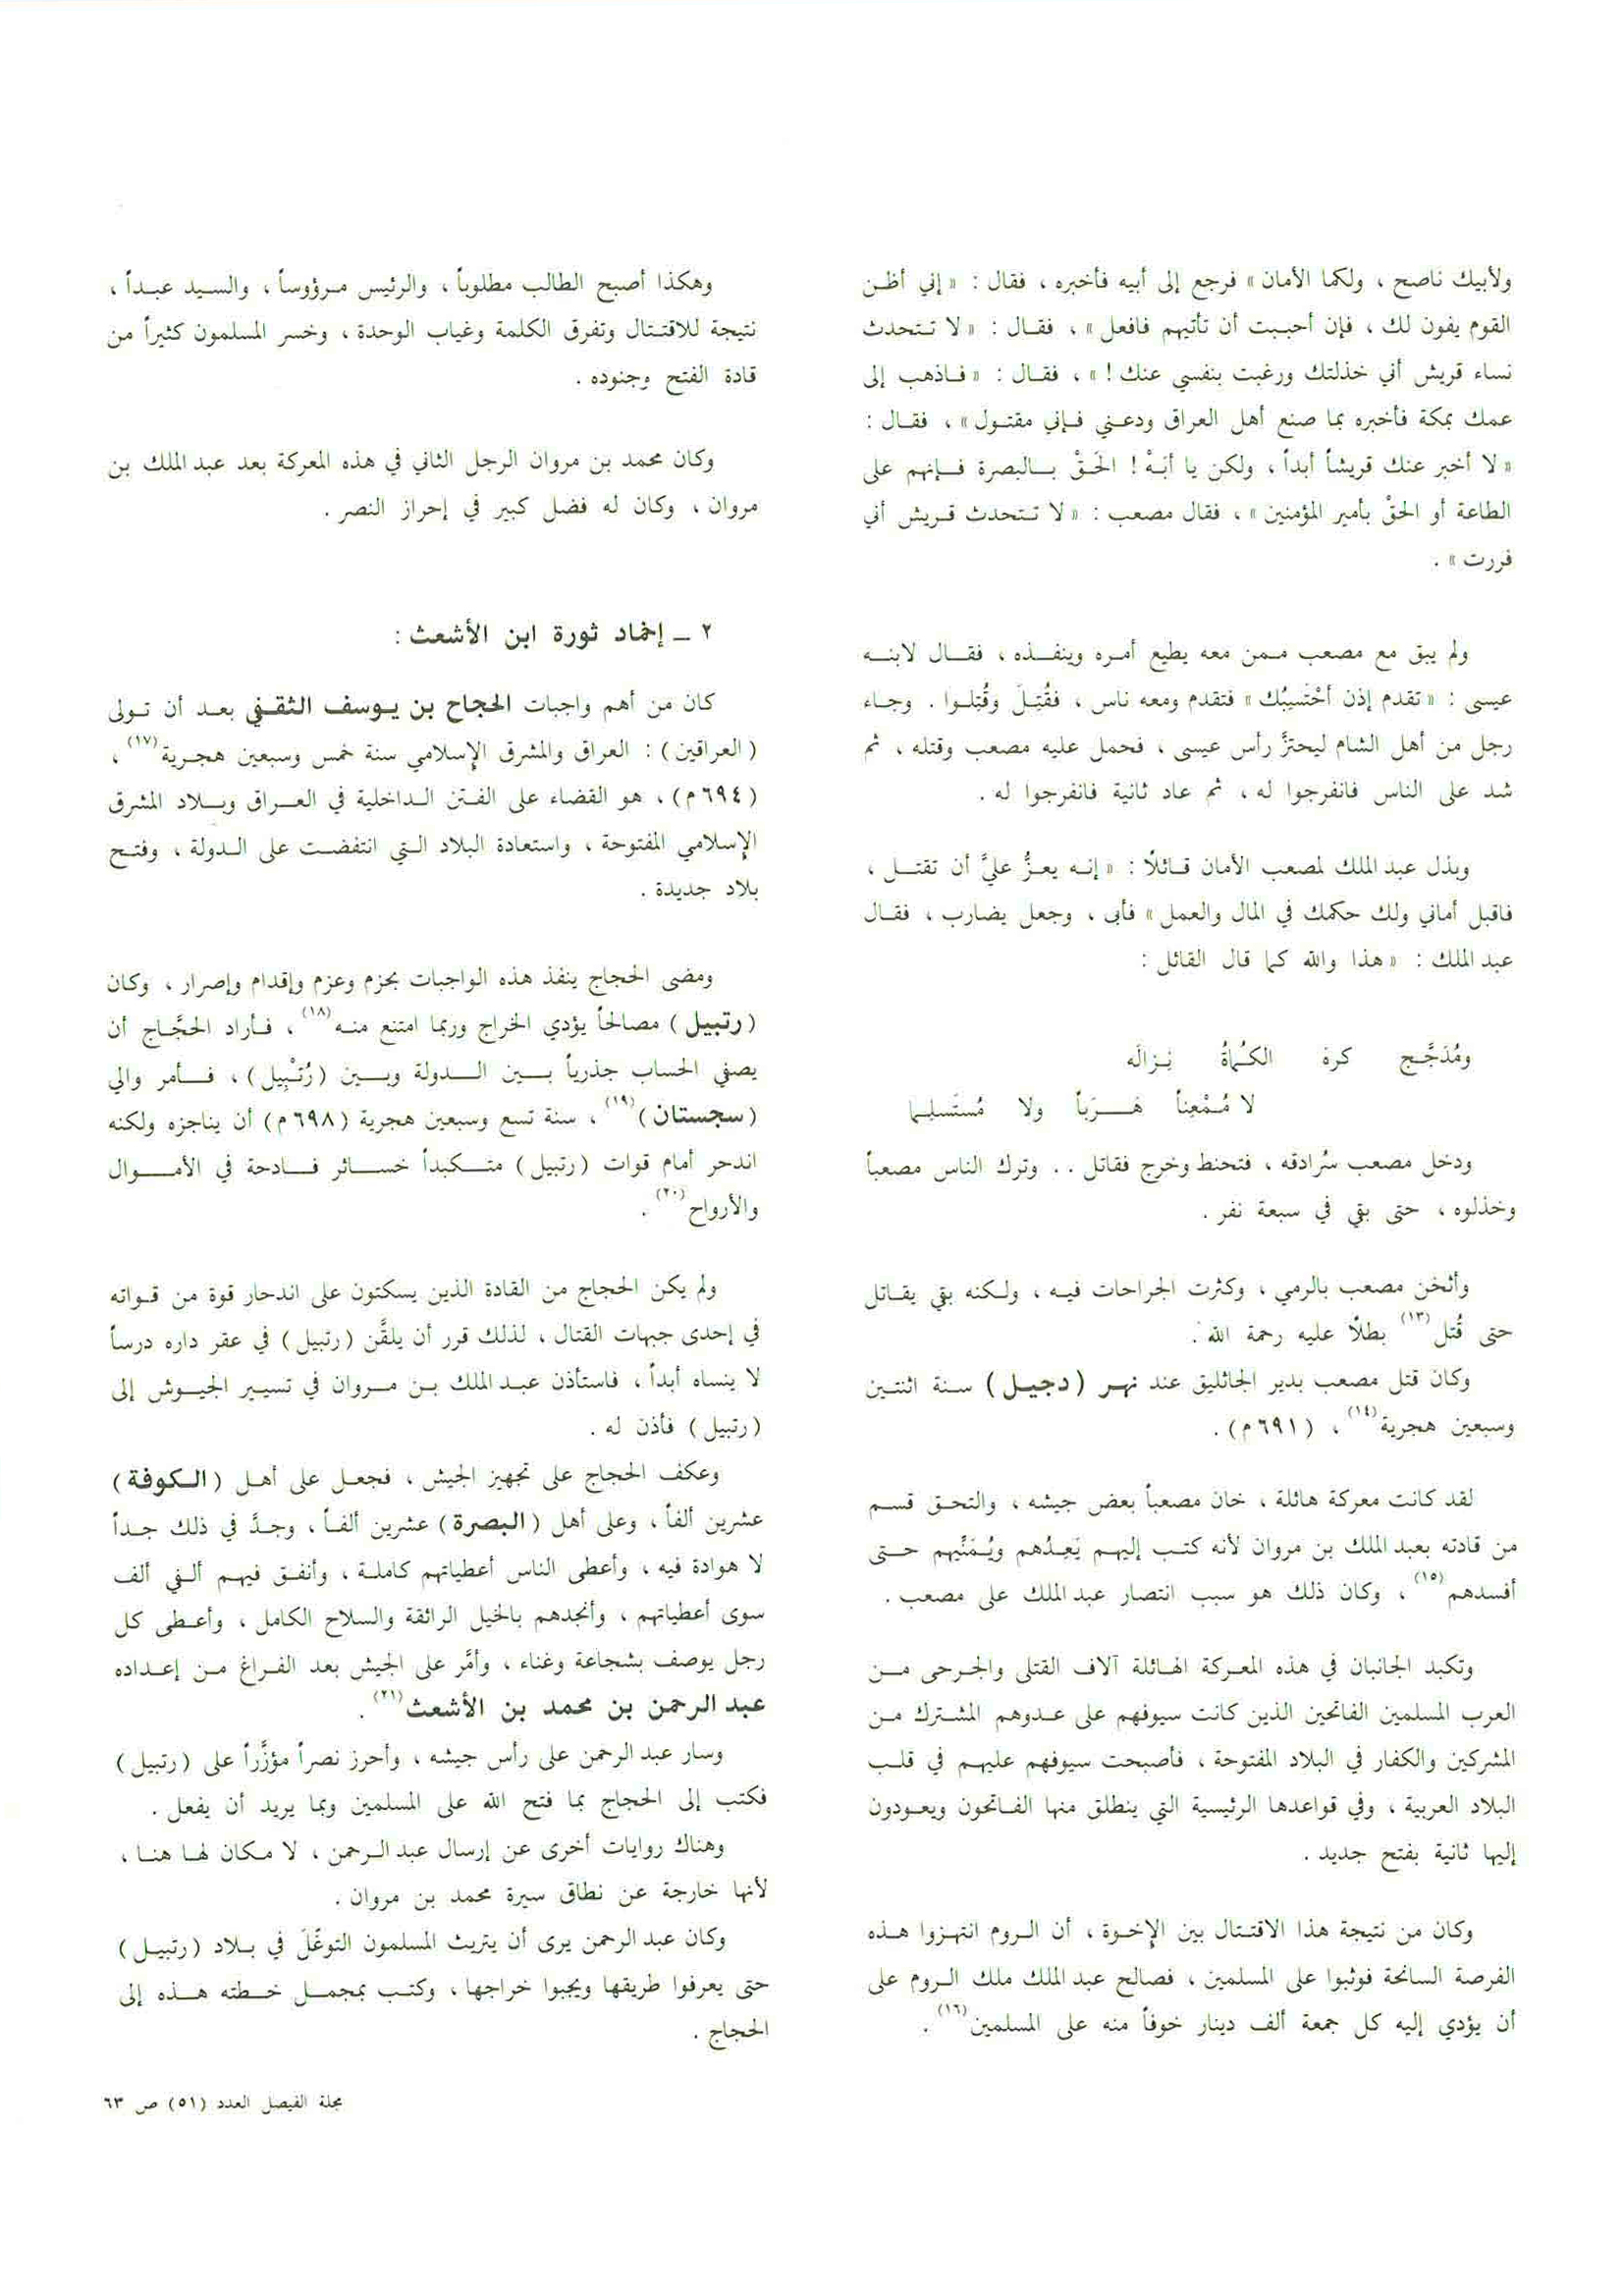 ولأبيك ناصح ، ولكما الأمان » فرجع إلى أبيه فأخبره ، فقال : « إني أظن
القوم يفون لك ، فإن أحببت أن تأتيهم فافعل » ، فقال : « لا تتحدث
نساء قريش أني خذلتك ورغبت بنفسي عنك ! » ، فقال : « فاذهب إلى
عمك بمكة فأخبره بما صنع أهل العراق ودعني فإني مقتول » ، فقال :
« لا أخبر عنك قريشاً أبداً ، ولكن يا أبَهْ ! الحَقْ بالبصرة فإنهم على
الطاعة أو الحقْ بأمير المؤمنين » ، فقال مصعب : « لا تتحدث قريش أني
فررت » .
ولم يبق مع مصعب ممن معه يطيع أمره وينفذه ، فقال لابنه
عيسى : « تقدم إذن أحْتَسِبُك » فتقدم ومعه ناس ، فقُتِلَ وقُتِلوا . وجاء
رجل من أهل الشام ليحتزَّ رأس عيسى ، فحمل عليه مصعب وقتله ، ثم
شد على الناس فانفرجوا له ، ثم عاد ثانية فانفرجوا له .
وبذل عبد الملك لمصعب الأمان قائلًا : « إنه يعزُّ عليَّ أن تقتل ،
فاقبل أماني ولك حكمك في المال والعمل » فأبى ، وجعل يضارب ، فقال
عبد الملك : « هذا والله كما قال القائل :
ومُدَجَّج كره الكُماةُ نِزالَه
لا مُمْعِناً هَرَباً ولا مُستَسلِما
ودخل مصعب سُرادقه ، فتحنط وخرج فقاتل .. وترك الناس مصعباً
وخذلوه ، حتى بقي في سبعة نفر .
وأثخن مصعب بالرمي ، وكثرت الجراحات فيه ، ولكنه بقي يقاتل
حتى قُتل(١٣) بطلًا عليه رحمة الله .
وكان قتل مصعب بدير الجاثليق عند نهر (دجيل) سنة اثنتين
وسبعين هجرية(١٤) ، (٦٩١م) .
لقد كانت معركة هائلة ، خان مصعباً بعض جيشه ، والتحق قسم
من قادته بعبد الملك بن مروان لأنه كتب إليهم يَعِدُهم ويُمَنِّيهم حتى
أفسدهم(١٥) ، وكان ذلك هو سبب انتصار عبد الملك على مصعب .
وتكبد الجانبان في هذه المعركة الهائلة آلاف القتلى والجرحى من
العرب المسلمين الفاتحين الذين كانت سيوفهم على عدوهم المشترك من
المشركين والكفار في البلاد المفتوحة ، فأصبحت سيوفهم عليهم في قلب
البلاد العربية ، وفي قواعدها الرئيسية التي ينطلق منها الفاتحون ويعودون
إليها ثانية بفتح جديد .
وكان من نتيجة هذا الاقتتال بين الإخوة ، أن الروم انتهزوا هذه
الفرصة السانحة فوثبوا على المسلمين ، فصالح عبد الملك ملك الروم على
أن يؤدي إليه كل جمعة ألف دينار خوفاً منه على المسلمين(١٦) .
وهكذا أصبح الطالب مطلوباً ، والرئيس مرؤوساً ، والسيد عبداً ،
نتيجة للاقتتال وتفرق الكلمة وغياب الوحدة ، وخسر المسلمون كثيراً من
قادة الفتح وجنوده .
وكان محمد بن مروان الرجل الثاني في هذه المعركة بعد عبد الملك بن
مروان ، وكان له فضل كبير في إحراز النصر .
٢ ـ إخماد ثورة ابن الأشعث :
كان من أهم واجبات الحجاج بن يوسف الثقفي بعد أن تولى
(العراقين) : العراق والمشرق الإسلامي سنة خمس وسبعين هجرية(١٧) ،
(٦٩٤م) ، هو القضاء على الفتن الداخلية في العراق وبلاد المشرق
الإسلامي المفتوحة ، واستعادة البلاد التي انتفضت على الدولة ، وفتح
بلاد جديدة .
ومضى الحجاج ينفذ هذه الواجبات بحزم وعزم وإقدام وإصرار ، وكان
(رتبيل) مصالحاً يؤدي الخراج وربما امتنع منه(١٨) ، فأراد الحجَّاج أن
يصفي الحساب جذرياً بين الدولة وبين (رُتْبِيل) ، فأمر والي
(سجستان)(١٩) ، سنة تسع وسبعين هجرية (٦٩٨م) أن يناجزه ولكنه
اندحر أمام قوات (رتبيل) متكبداً خسائر فادحة في الأموال
والأرواح(٢٠) .
ولم يكن الحجاج من القادة الذين يسكتون على اندحار قوة من قواته
في إحدى جبهات القتال ، لذلك قرر أن يلقَّن (رتبيل) في عقر داره درساً
لا ينساه أبداً ، فاستأذن عبد الملك بن مروان في تسيير الجيوش إلى
(رتبيل) فأذن له .
وعكف الحجاج على تجهيز الجيش ، فجعل على أهل (الكوفة)
عشرين ألفاً ، وعلى أهل (البصرة) عشرين ألفاً ، وجدَّ في ذلك جداً
لا هوادة فيه ، وأعطى الناس أعطياتهم كاملة ، وأنفق فيهم ألفي ألف
سوى أعطياتهم ، وأنجدهم بالخيل الرائقة والسلاح الكامل ، وأعطى كل
رجل يوصف بشجاعة وغناء ، وأمَّر على الجيش بعد الفراغ من إعداده
عبد الرحمن بن محمد بن الأشعث(٢١) .
وسار عبد الرحمن على رأس جيشه ، وأحرز نصراً مؤزَّراً على (رتبيل)
فكتب إلى الحجاج بما فتح الله على المسلمين وبما يريد أن يفعل .
وهناك روايات أخرى عن إرسال عبد الرحمن ، لا مكان لها هنا ،
لأنها خارجة عن نطاق سيرة محمد بن مروان .
وكان عبد الرحمن يرى أن يتريث المسلمون التوغّلَ في بلاد (رتبيل)
حتى يعرفوا طريقها ويجبوا خراجها ، وكتب بمجمل خطته هذه إلى
الحجاج .
مجلة الفيصل العدد (٥١) ص ٦٣